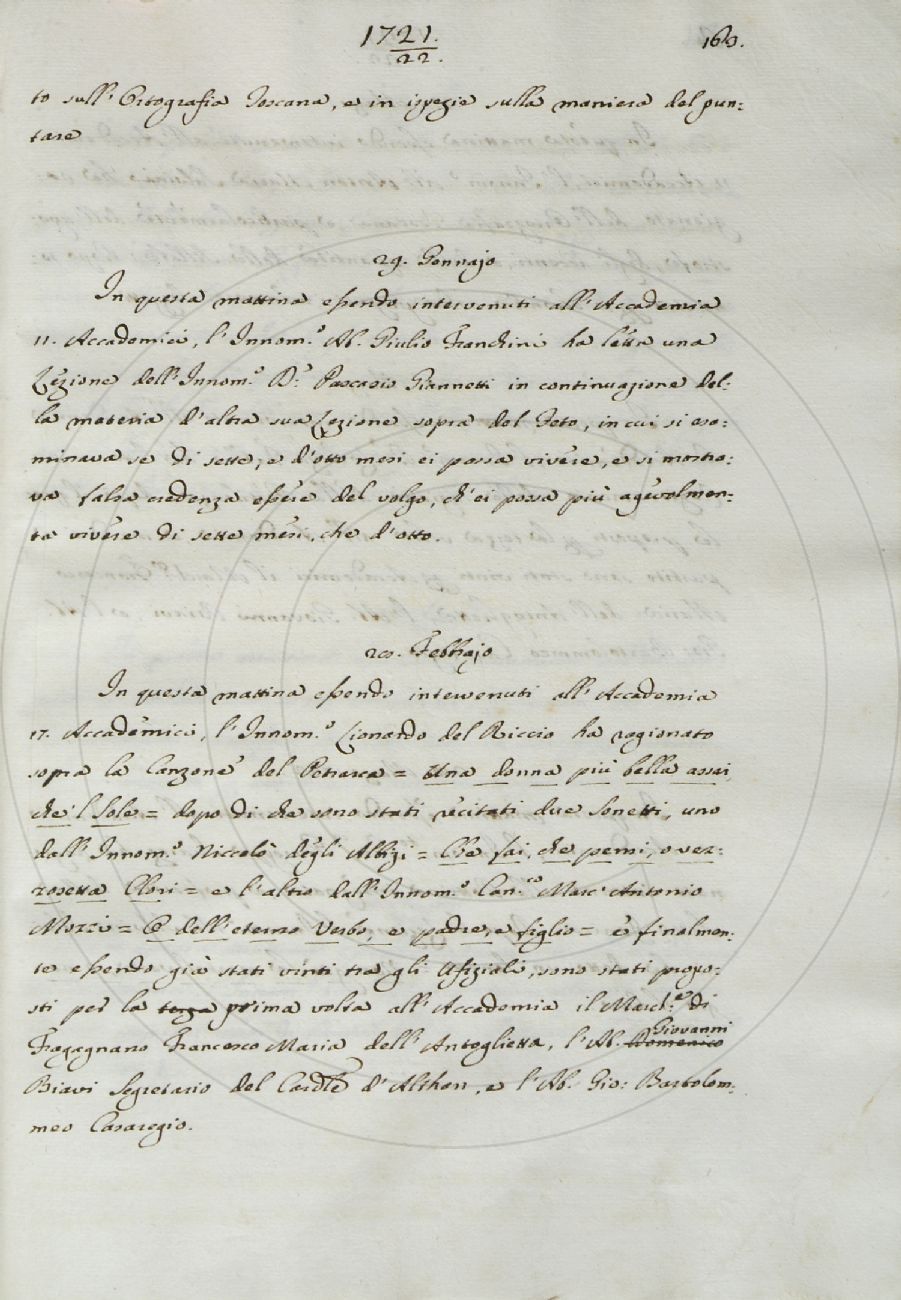 1721. 163.
22.
to sull' Ortografia Toscana, e in ispezie sulla maniera del pun:
tare
29. Gennajo
In questa mattina essendo intervenuti all' Accademia
11. Accademici, l' Innom.º Ab. Giulio Franchini ha letta una
Lezione dell' Innom.º D.ʳ Pascasio Giannetti in continuazione del:
la materia d' altra sua Lezione sopra del Feto, in cui si esa:
minava se di sette, e d' otto mesi ei possa vivere, e si mostra:
va falsa credenza essere del volgo, ch' ei possa più agevolmen:
te vivere di sette mesi, che d' otto.
20. Febbrajo
In questa mattina essendo intervenuti all' Accademia
17. Accademici, l' Innom.º Lionardo del Riccio ha ragionato
sopra la Canzone del Petrarca = Una donna più bella assai
che 'l Sole = dopo di che sono stati recitati due Sonetti, uno
dall' Innom.º Niccolò degli Albizi = Che fai, che pensi, o vez:
zosetta Clori = e l' altro dall' Innom.º Can.ᶜᵒ Marc' Antonio
Mozzi = O dell' eterno Verbo, e padre, e figlio = e finalmen:
te essendo già stati vinti tra gli Ufiziali, sono stati propo:
sti per la terza prima volta all' Accademia il March.ᵉ di
Fragagnano Francesco Maria dell' Antoglietta, l' Ab. Domenico Giovanni
Biavi Segretario del Cardle d' Althan, e l' Ab. Gio: Bartolom:
meo Casaregio.